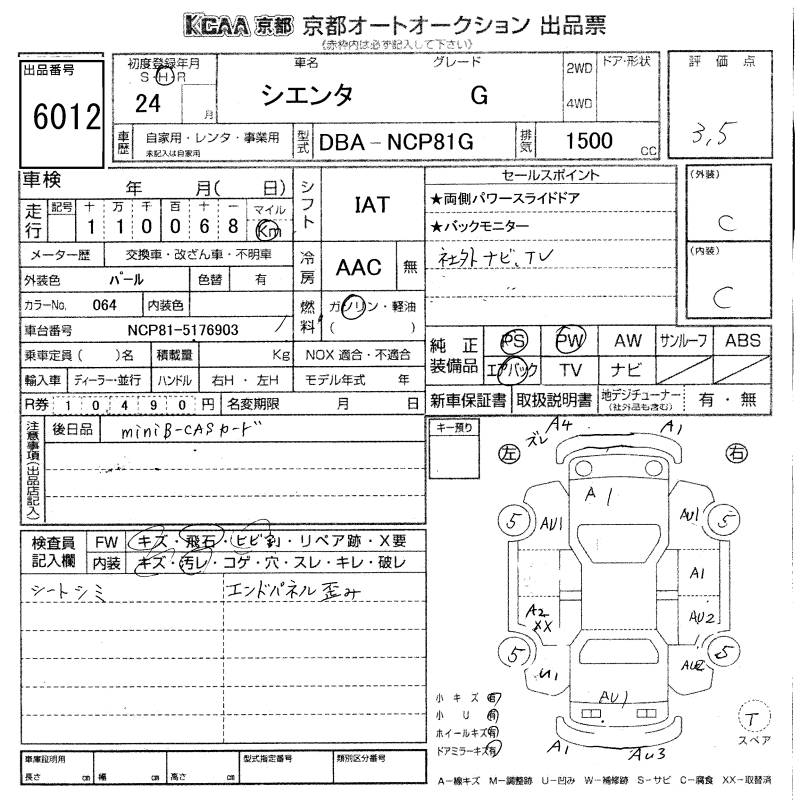 KCAA 京都 京都オートオークション 出品票
(赤枠内は必ず記入して下さい)
出品番号
6012
初度登録年月
S・H・R
24 月
車名
シエンタ
グレード
G
2WD
4WD
ドア・形状
評価点
3,5
車歴
自家用・レンタ・事業用
未記入は自家用
型式
DBA-NCP81G
排気
1500 cc
車検 年 月( 日)
走行
記号 十 万 千 百 十 一 マイル
1 1 0 0 6 8 Km
シフト
IAT
セールスポイント
★両側パワースライドドア
★バックモニター
社外ナビ、TV
(外装)
C
(内装)
C
メーター歴 交換車・改ざん車・不明車
冷房
AAC 無
外装色 パール 色替 有
カラーNo. 064 内装色
燃料
ガソリン・軽油
( )
車台番号 NCP81-5176903
純正装備品
PS PW AW サンルーフ ABS
エアバック TV ナビ
乗車定員( )名 積載量 Kg NOX 適合・不適合
輸入車 ディーラー・並行 ハンドル 右H・左H モデル年式 年
R券 10490円 名変期限 月 日
新車保証書 取扱説明書 地デジチューナー (社外品も含む) 有・無
注意事項(出品店記入)
後日品 miniB-CASカード
キー預り
左
右
ズレ
A4
A1
A1
5
AU1
AU1
5
A1
A2
XX
AU2
5
U1
AU2
5
AU1
A1
AU3
検査員記入欄
FW キズ・飛石・ヒビ割・リペア跡・X要
内装 キズ・汚レ・コゲ・穴・スレ・キレ・破レ
シートシミ
エンドパネル歪み
小キズ 有
小U 有
ホイールキズ 有
ドアミラーキズ 有
T
スペア
車庫証明用
長さ cm 幅 cm 高さ cm
型式指定番号
類別区分番号
A-線キズ M-調整跡 U-凹み W-補修跡 S-サビ C-腐食 XX-取替済